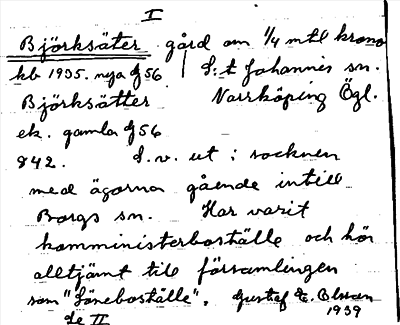 I
Björksäter gård om 1/4 mtl krono
kb 1935. nya bl 56 S:t Johannis sn.
Björksätter Norrköping Ögl.
ek. gamla bl 56
842. L. v. ut i socknen
med ägorna gående intill
Borgs sn. Har varit
komministerboställe och hör
alltjämt till församlingen
som "Löneboställe". Gustaf E. Olsson
Se II 1939